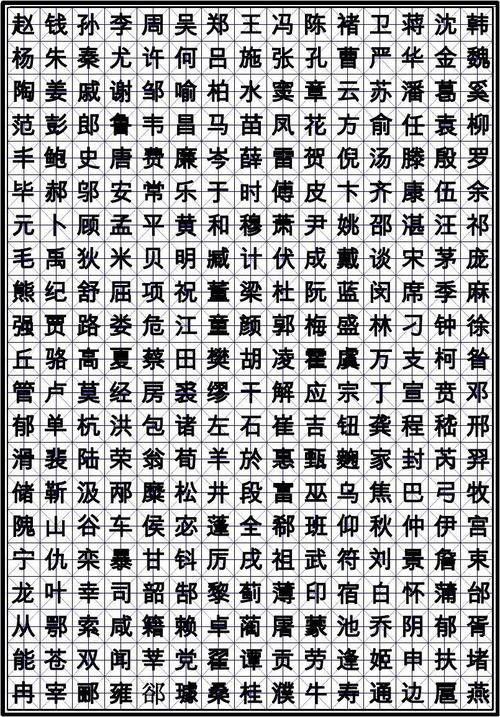 赵钱孙李周吴郑王冯陈褚卫蒋沈韩
杨朱秦尤许何吕施张孔曹严华金魏
陶姜戚谢邹喻柏水窦章云苏潘葛奚
范彭郎鲁韦昌马苗凤花方俞任袁柳
丰鲍史唐费廉岑薛雷贺倪汤滕殷罗
毕郝邬安常乐于时傅皮卞齐康伍余
元卜顾孟平黄和穆萧尹姚邵湛汪祁
毛禹狄米贝明臧计伏成戴谈宋茅庞
熊纪舒屈项祝董梁杜阮蓝闵席季麻
强贾路娄危江童颜郭梅盛林刁钟徐
丘骆高夏蔡田樊胡凌霍虞万支柯昝
管卢莫经房裘缪干解应宗丁宣贲邓
郁单杭洪包诸左石崔吉钮龚程嵇邢
滑裴陆荣翁荀羊於惠甄麴家封芮羿
储靳汲邴糜松井段富巫乌焦巴弓牧
隗山谷车侯宓蓬全郗班仰秋仲伊宫
宁仇栾暴甘钭厉戎祖武符刘景詹束
龙叶幸司韶郜黎蓟薄印宿白怀蒲邰
从鄂索咸籍赖卓蔺屠蒙池乔阴郁胥
能苍双闻莘党翟谭贡劳逢姬申扶堵
冉宰郦雍郤璩桑桂濮牛寿通边扈燕